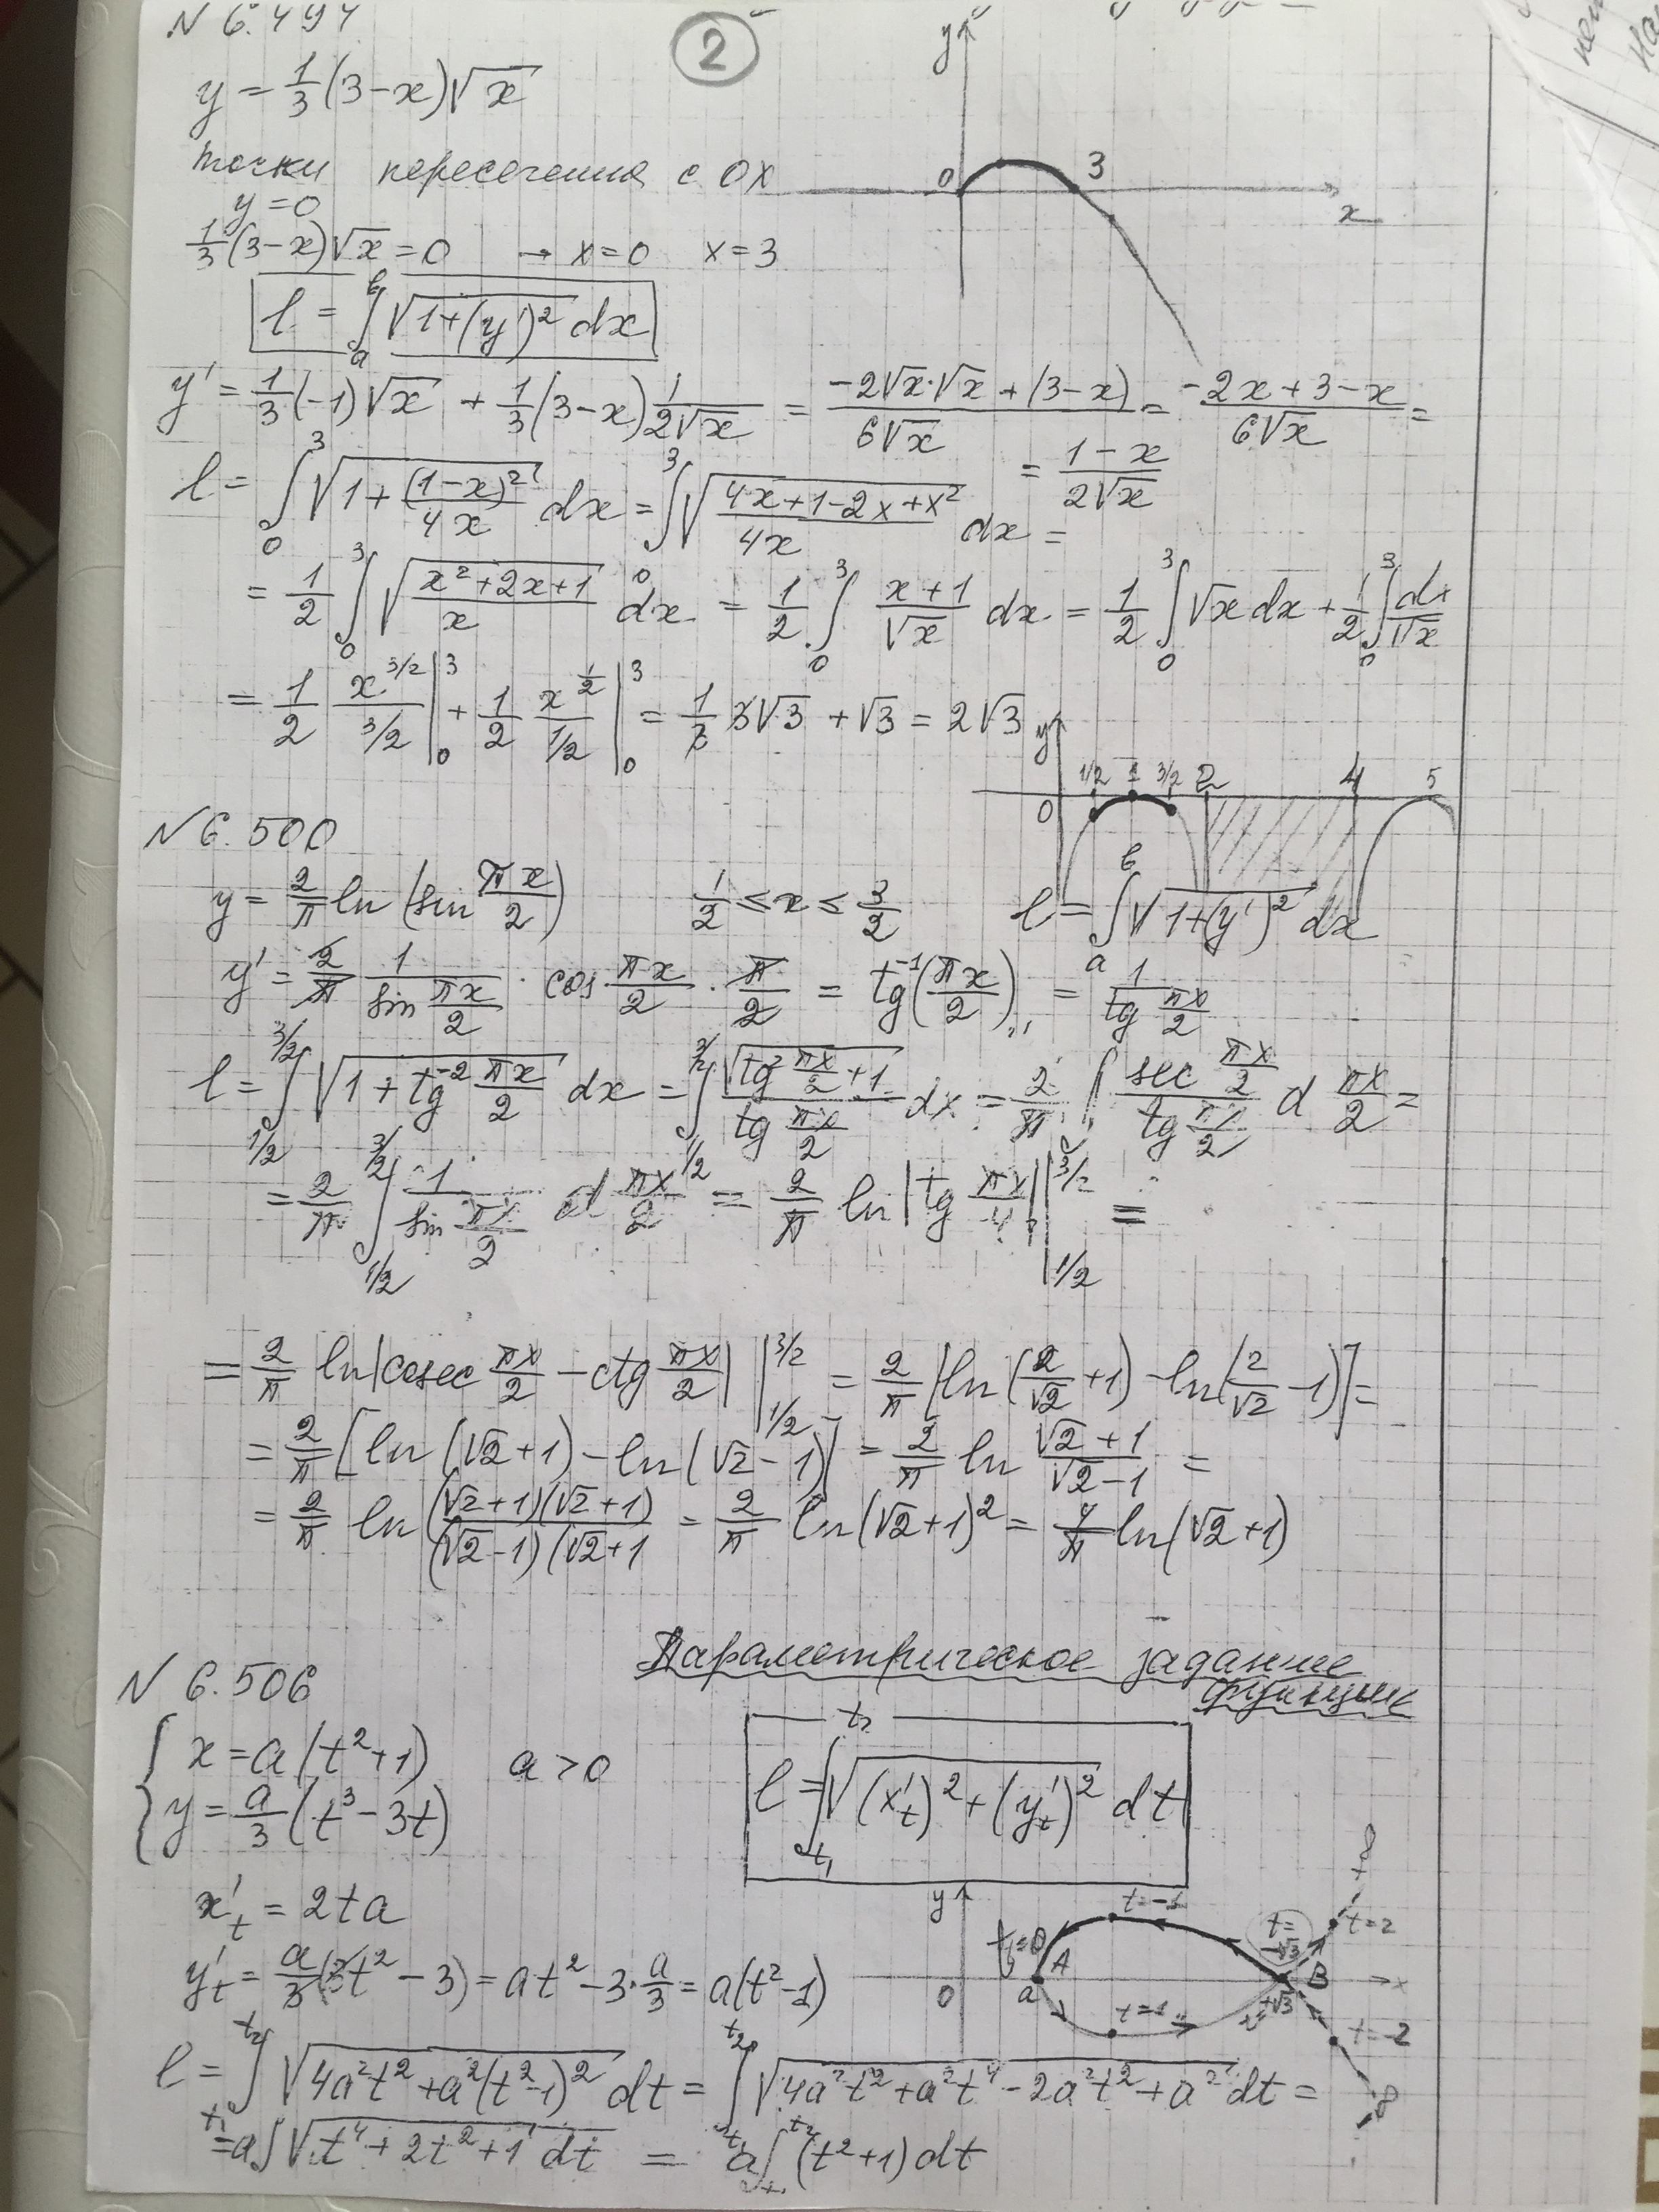 N 6.494
②
y = 1/3 (3-x)√x
точки пересечения с OX
y=0
1/3 (3-x)√x = 0 → x=0 x=3
l = ∫_a^b √(1+(y')²) dx
y
0 3 x
y' = 1/3 (-1)√x + 1/3 (3-x) 1/(2√x) = (-2√x·√x + (3-x))/(6√x) = (-2x+3-x)/(6√x) =
= (1-x)/(2√x)
l = ∫_0^3 √(1+(1-x)²/(4x)) dx = ∫_0^3 √((4x+1-2x+x²)/(4x)) dx =
= 1/2 ∫_0^3 √((x²+2x+1)/x) dx = 1/2 ∫_0^3 (x+1)/√x dx = 1/2 ∫_0^3 √x dx + 1/2 ∫_0^3 dx/√x
= 1/2 x^(3/2)/(3/2) |_0^3 + 1/2 x^(1/2)/(1/2) |_0^3 = 1/3 3√3 + √3 = 2√3
y
0 1/2 1 3/2 2 4 5
N 6.500
y = 2/π ln (sin πx/2) 1/2 ≤ x ≤ 3/2 l = ∫_a^b √(1+(y')²) dx
y' = 2/π 1/(sin πx/2) · cos πx/2 · π/2 = tg⁻¹(πx/2) = 1/(tg πx/2)
l = ∫_1/2^3/2 √(1+tg⁻² πx/2) dx = ∫_1/2^3/2 √(tg² πx/2 +1)/(tg πx/2) dx = 2/π ∫ (sec πx/2)/(tg πx/2) d πx/2 =
= 2/π ∫_1/2^3/2 1/(sin πx/2) d πx/2 = 2/π ln|tg πx/4| |_1/2^3/2 =
= 2/π ln|cosec πx/2 - ctg πx/2| |_1/2^3/2 = 2/π [ln(2/√2 +1) - ln(2/√2 -1)] =
= 2/π [ln(√2+1) - ln(√2-1)] = 2/π ln (√2+1)/(√2-1) =
= 2/π ln ((√2+1)(√2+1)/(√2-1)(√2+1) = 2/π ln(√2+1)² = 4/π ln(√2+1)
Параметрическое задание
функции
N 6.506
x = a(t²+1) a>0
y = a/3 (t³-3t)
l = ∫_t₁^t₂ √((x'_t)²+(y'_t)²) dt
x'_t = 2ta
y'_t = a/3 (3t²-3) = at² - 3·a/3 = a(t²-1)
y
t=0 A a 0
t=-1
t=-√3
B x
t=2
t=1
t=+√3
t=-2
l = ∫_t₁^t₂ √(4a²t²+a²(t²-1)²) dt = ∫_t₁^t₂ √(4a²t²+a²t⁴-2a²t²+a²) dt =
= a∫√(t⁴+2t²+1) dt = a∫_t₁^t₂ (t²+1) dt